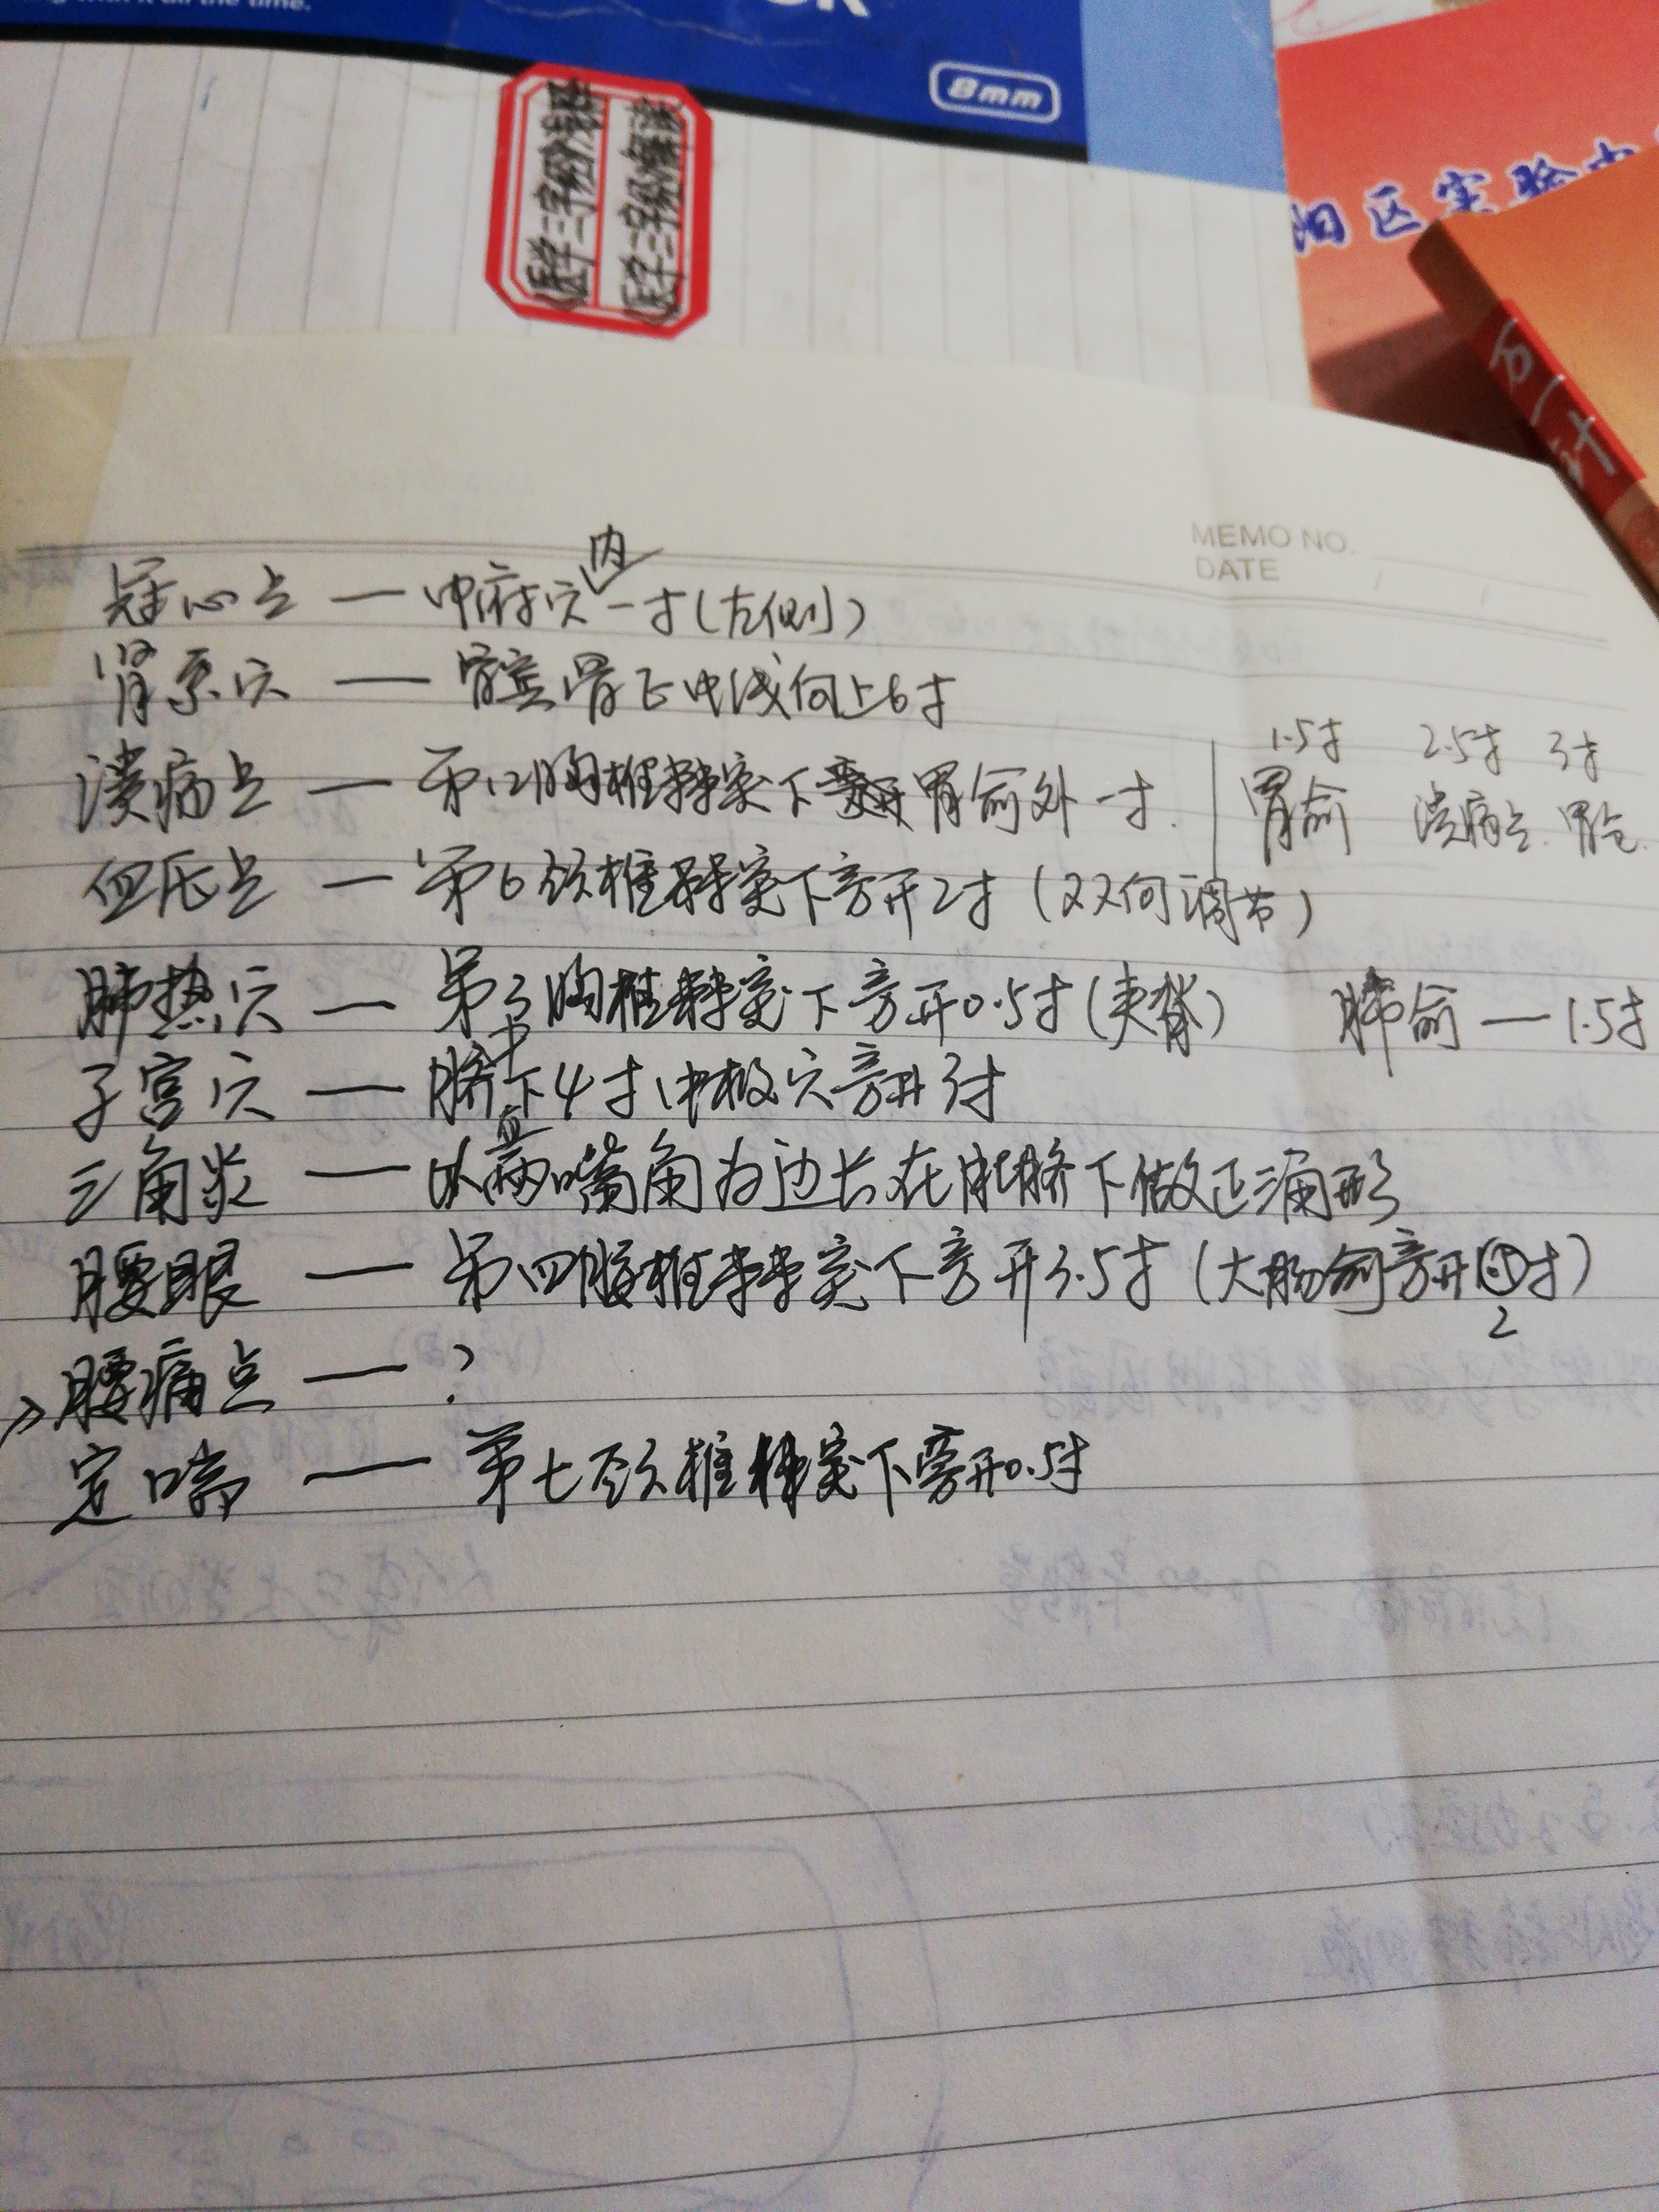 8mm
医学三字经
医学三字经
阳区实验
MEMO NO.
DATE
冠心点 — 中府穴内一寸(左侧)
肾系穴 — 髌骨正中线向上6寸
溃疡点 — 第12胸椎棘突下 胃俞外一寸.
1.5寸 2.5寸 3寸
胃俞 溃疡点. 胃仓.
血压点 — 第6颈椎棘突下旁开2寸(双向调节)
肺热穴 — 第3胸椎棘突下旁开0.5寸(夹脊) 肺俞 — 1.5寸
子宫穴 — 脐中下4寸中极穴旁开3寸
三角灸 — 以两嘴角为边长在肚脐下做正三角形
腰眼 — 第四腰椎棘突下旁开3.5寸(大肠俞旁开2寸)
腰痛点 — ?
定喘 — 第七颈椎棘突下旁开0.5寸